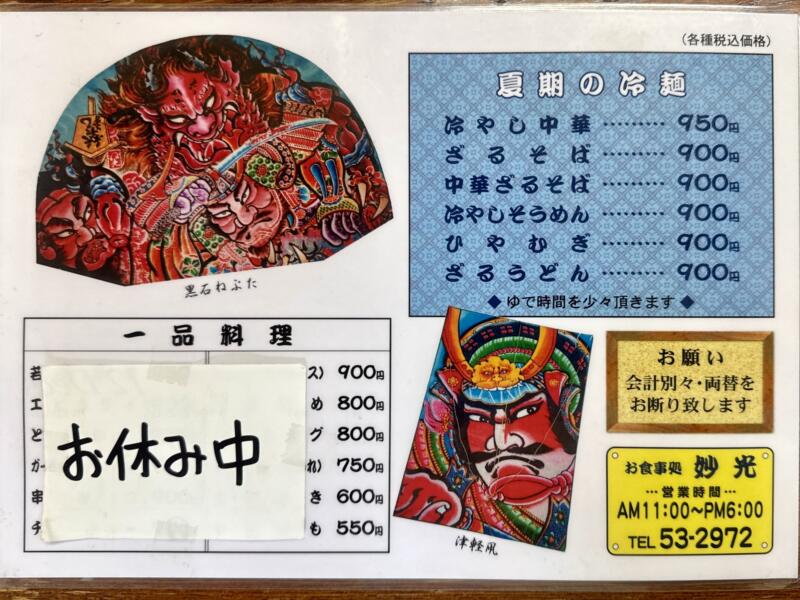 （各種税込価格）
夏期の冷麺
冷やし中華 ……… 950円
ざるそば ……… 900円
中華ざるそば ……… 900円
冷やしそうめん ……… 900円
ひやむぎ ……… 900円
ざるうどん ……… 900円
◆ ゆで時間を少々頂きます ◆
黒石ねぷた
一品料理
ス) 900円
エ め 800円
と グ 800円
ガ れ) 750円
串 き 600円
チ も 550円
お休み中
津軽凧
お願い
会計別々・両替を
お断り致します
お食事処 妙光
…営業時間…
AM11:00～PM6:00
TEL 53-2972